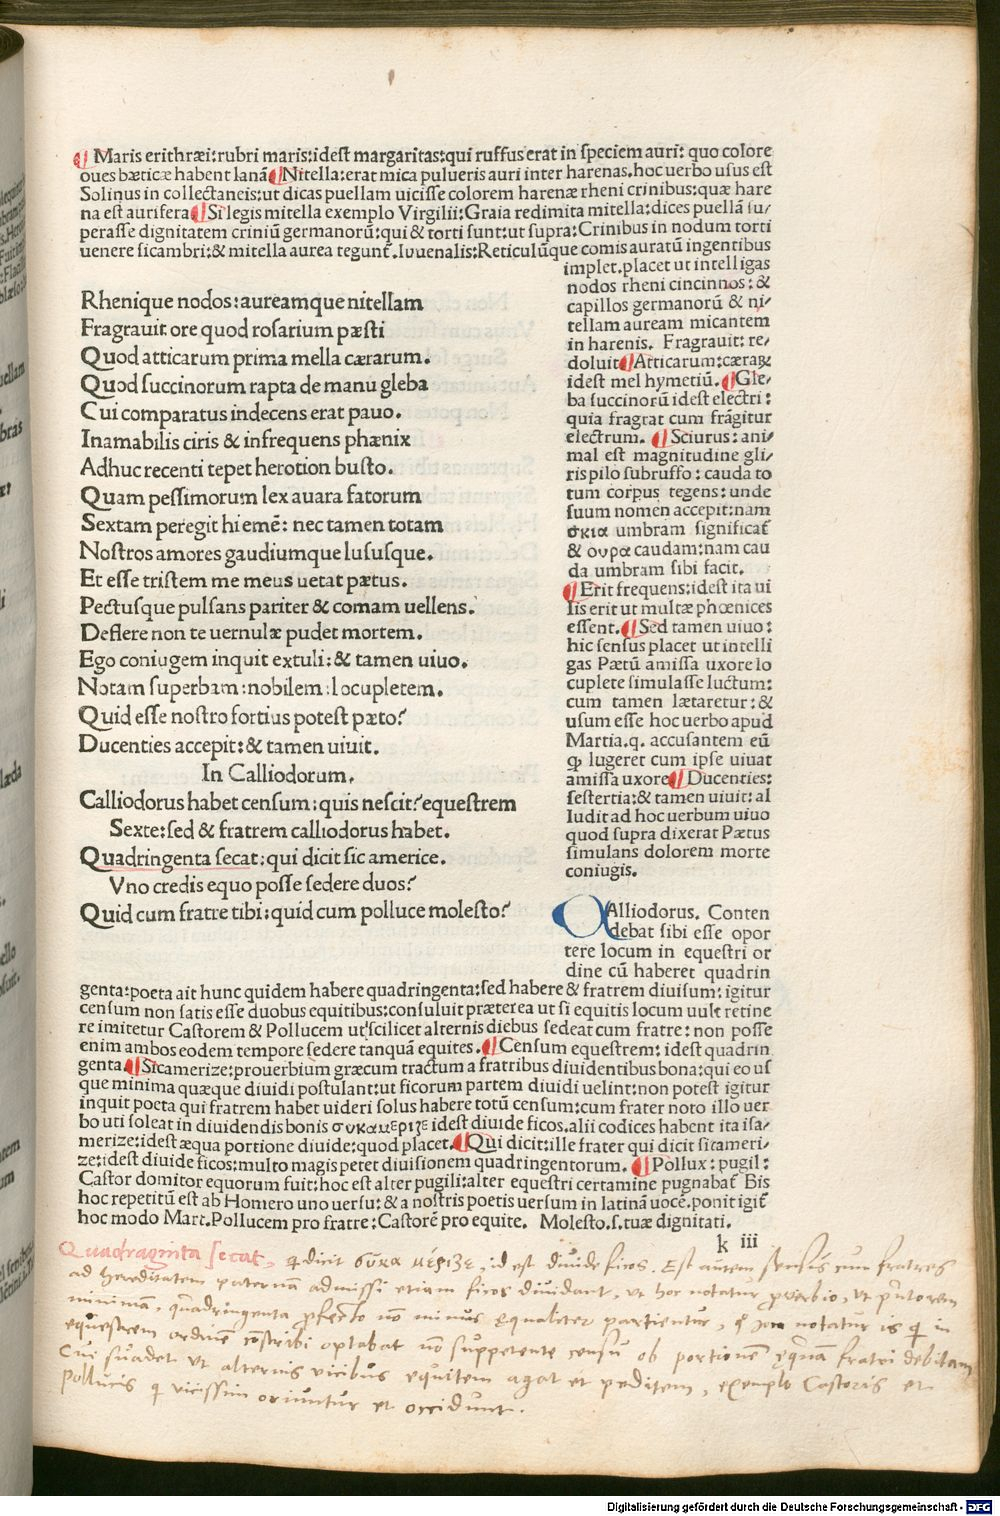 ¶ Maris erithræi:rubri maris:idest margaritas:qui ruffus erat in speciem auri: quo colore
oues bæticæ habent lanā ¶ Nitella:erat mica pulueris auri inter harenas.hoc uerbo usus est
Solinus in collectaneis:ut dicas puellam uicisse colorem harenæ rheni crinibus:quæ hare
na est aurifera ¶ Si legis mitella exemplo Virgilii: Graia redimita mitella:dices puellā su/
perasse dignitatem criniū germanorū:qui & torti sunt:ut supra:Crinibus in nodum torti
uenere sicambri:& mitella aurea tegunt̄.Iuuenalis:Reticulūque comis auratū ingentibus
implet.placet ut intelligas
nodos rheni cincinnos: &
capillos germanorū & ni/
tellam auream micantem
in harenis. Fragrauit: re/
doluit ¶ Atticarum:cæraꝝ
idest mel hymetiū. ¶ Gle/
ba succinorū idest electri:
quia fragrat cum frāgitur
electrum. ¶ Sciurus: ani/
mal est magnitudine gli/
ris pilo subruffo: cauda to
tum corpus tegens: unde
suum nomen accepit:nam
σκια umbram significat̄
& ουρα caudam:nam cau
da umbram sibi facit.
¶ Erit frequens:idest ita ui
lis erit ut multæ phœnices
essent. ¶ Sed tamen uiuo:
hic sensus placet ut intelli
gas Pætū amissa uxore lo
cuplete simulasse luctum:
cum tamen lætaretur: &
usum esse hoc uerbo apud
Martia.q. accusantem eū
ꝙ lugeret cum ipse uiuat
amissa uxore ¶ Ducenties:
sestertia:& tamen uiuit: al
ludit ad hoc uerbum uiuo
quod supra dixerat Pætus
simulans dolorem morte
coniugis.
Rhenique nodos:aureamque nitellam
Fragrauit ore quod rosarium pæsti
Quod atticarum prima mella cærarum.
Quod succinorum rapta de manu gleba
Cui comparatus indecens erat pauo.
Inamabilis ciris & infrequens phænix
Adhuc recenti tepet herotion busto.
Quam pessimorum lex auara fatorum
Sextam peregit hiemē: nec tamen totam
Nostros amores gaudiumque lususque.
Et esse tristem me meus uetat pætus.
Pectusque pulsans pariter & comam uellens.
Deflere non te uernulæ pudet mortem.
Ego coniugem inquit extuli:& tamen uiuo.
Notam superbam:nobilem:locupletem.
Quid esse nostro fortius potest pæto?
Ducenties accepit:& tamen uiuit.
In Calliodorum.
Calliodorus habet censum:quis nescit?equestrem
Sexte:sed & fratrem calliodorus habet.
Quadringenta secat:qui dicit sic americe.
Vno credis equo posse sedere duos?
Quid cum fratre tibi:quid cum polluce molesto?
CAlliodorus. Conten
debat sibi esse opor
tere locum in equestri or
dine cū haberet quadrin
genta:poeta ait hunc quidem habere quadringenta:sed habere & fratrem diuisum: igitur
censum non satis esse duobus equitibus:consuluit præterea ut si equitis locum uult retine
re imitetur Castorem & Pollucem ut scilicet alternis diebus sedeat cum fratre: non posse
enim ambos eodem tempore sedere tanquā equites. ¶ Censum equestrem: idest quadrin
genta. ¶ Sicamerize:prouerbium græcum tractum a fratribus diuidentibus bona:qui eo us
que minima quæque diuidi postulant:ut ficorum partem diuidi uelint:non potest igitur
inquit poeta qui fratrem habet uideri solus habere totū censum:cum frater noto illo uer
bo uti soleat in diuidendis bonis συκαμεριζε idest diuide ficos.alii codices habent ita isa/
merize:idest æqua portione diuide:quod placet. ¶ Qui dicit:ille frater qui dicit sitameri/
ze:idest diuide ficos:multo magis petet diuisionem quadringentorum. ¶ Pollux: pugil:
Castor domitor equorum fuit:hoc est alter pugili:alter equestri certamine pugnabat̄ Bis
hoc repetitū est ab Homero uno uersu: & a nostris poetis uersum in latinā uocē.ponit igit̄
hoc modo Mart.Pollucem pro fratre:Castorē pro equite. Molesto.s.tuæ dignitati.
k iii
Quadraginta secat, q dicit σύκα μέριζε, id est diuide ficos. Est autem sensus cum fratres
ad hereditatem paternam admissi etiam ficos diuidant, ut hoc notatur prouerbio, ut
minimam, quadringenta profecto nō minus equaliter partientur, notatur is qi in
equestrem ordinē cōscribi optabat nō suppetente censu ob portionē fratri debitam
Cui suadet ut alternis uicibus equitem agat et peditem, exemplo Castoris et
Pollucis qi uicissim oriuntur et occidunt.
Digitalisierung gefördert durch die Deutsche Forschungsgemeinschaft - DFG